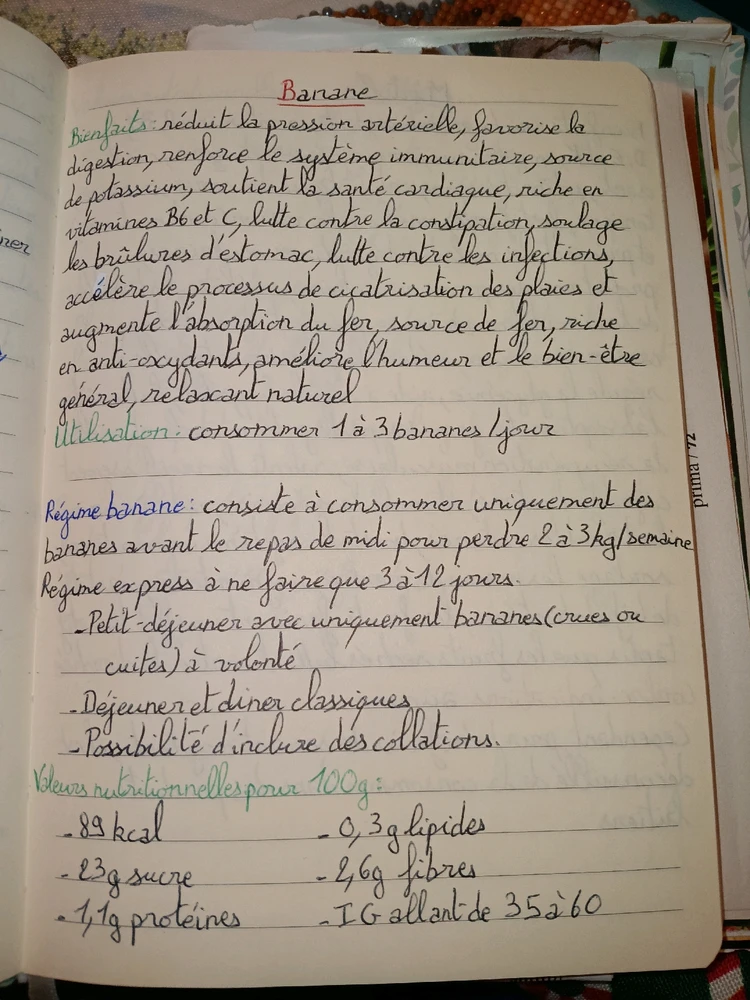 Banane
Bienfaits: réduit la pression artérielle, favorise la
digestion, renforce le système immunitaire, source
de potassium, soutient la santé cardiaque, riche en
vitamines B6 et C, lutte contre la constipation, soulage
les brûlures d'estomac, lutte contre les infections,
accélère le processus de cicatrisation des plaies et
augmente l'absorption du fer, source de fer, riche
en anti-oxydants, améliore l'humeur et le bien-être
général, relaxant naturel
Utilisation: consommer 1 à 3 bananes/jour
Régime banane: consiste à consommer uniquement des
bananes avant le repas de midi pour perdre 2 à 3kg/semaine
Régime express à ne faire que 3 à 12 jours.
-Petit-déjeuner avec uniquement bananes (crues ou
cuites) à volonté
-Déjeuner et dîner classiques
-Possibilité d'inclure des collations.
Valeurs nutritionnelles pour 100g:
-89 kcal -0,3g lipides
-23g sucre -2,6g fibres
-1,1g protéines -IG allant de 35 à 60
prima / 72